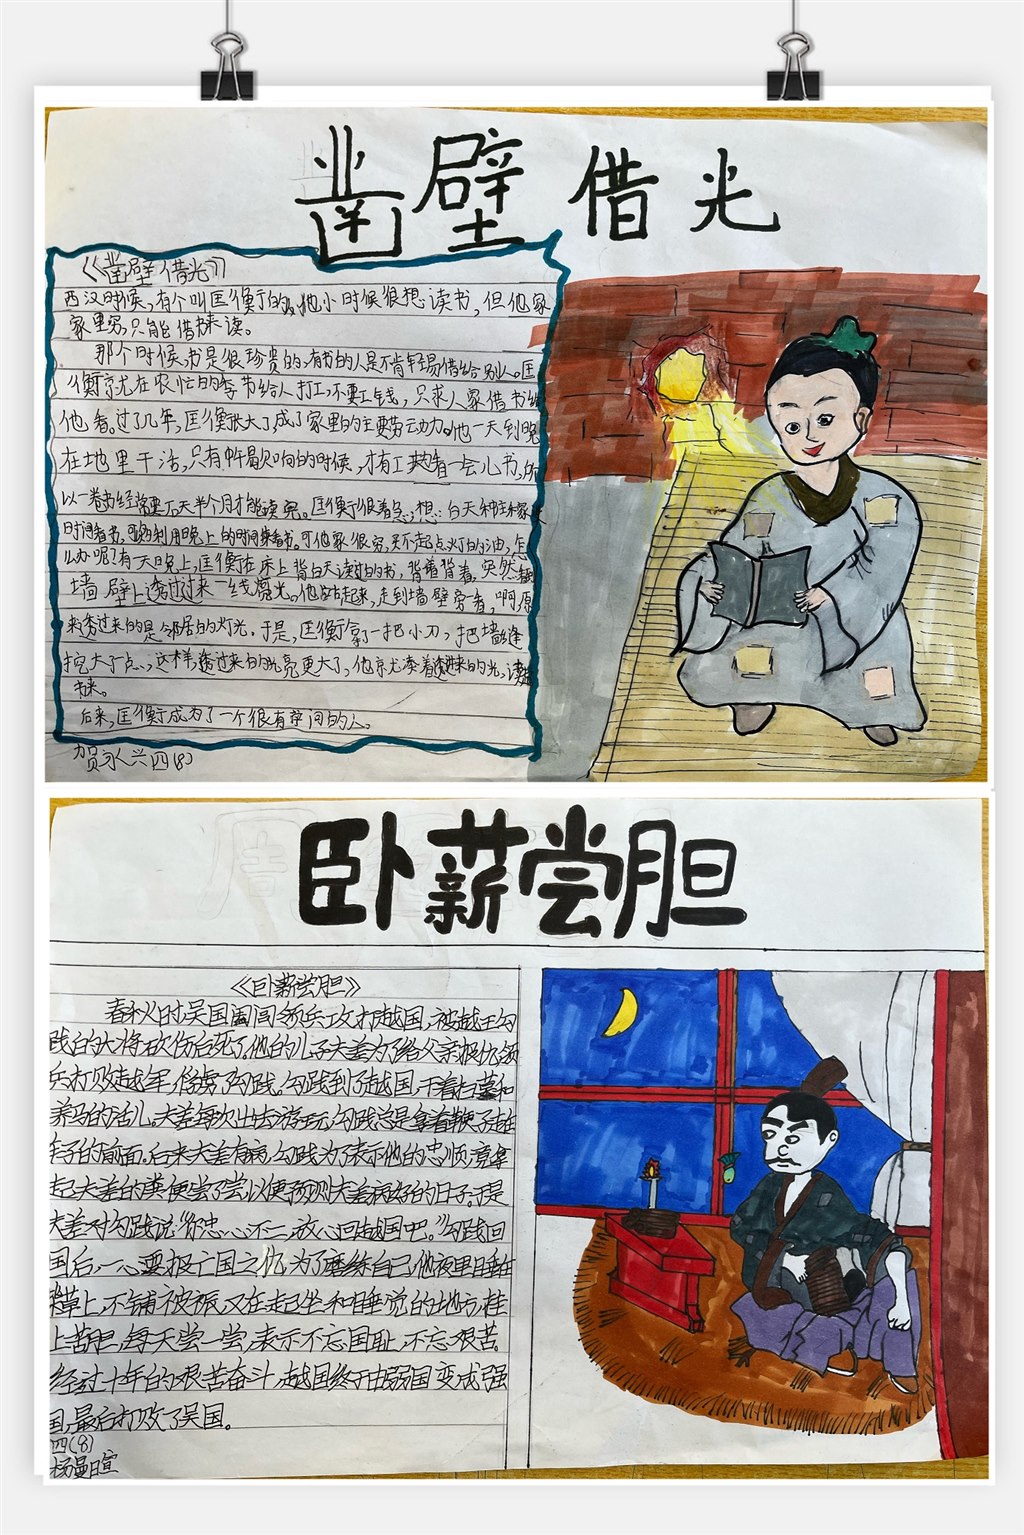 凿壁借光
《凿壁借光》
西汉时候,有个叫匡衡的,他小时候很想读书,但他家
家里穷,只能借书来读。
那个时候,书是很珍贵的,有书的人是不肯轻易借给别人。匡
衡就在农忙的季节给人打工,不要工钱,只求人家借书给
他看。过了几年,匡衡长大了,成了家里的主要劳动力。他一天到晚
在地里干活,只有中午歇晌的时候,才有工夫看一会儿书,所
以一卷书经常要十天半个月才能读完。匡衡很着急,想:白天种庄稼没
时间看书,可以利用晚上的时间来看书。可他家很穷,买不起点灯的油,怎
么办呢?有一天晚上,匡衡在床上背白天读过的书,背着背着,突然
墙壁上透过过来一线亮光。他站起来,走到墙壁旁看,啊,原
来透过来的是邻居的灯光。于是,匡衡拿了一把小刀,把墙缝
挖大了点,这样,透过来的光亮更大了,他就凑着透进来的光,读起
书来。
后来,匡衡成为了一个很有学问的人。
贺永兴 四(8)
卧薪尝胆
《卧薪尝胆》
春秋时,吴国阖闾领兵攻打越国,被越王勾
践的大将砍伤后死了。他的儿子夫差为了给父亲报仇,领
兵打败越军,俘虏了勾践。勾践到了越国,干着扫墓和
养马的活儿。夫差每次出去游玩,勾践总是拿着鞭子走在
车子的前面。后来夫差有病,勾践为了表示他的忠顺,竟拿
起夫差的粪便尝了尝,以便预测夫差病好的日子。于是
夫差对勾践说“你忠心不二,放心回越国吧。”勾践回
国后,一心要报亡国之仇,为了磨练自己,他夜里睡在
柴草上,不铺被褥,又在走己坐和睡觉的地方,挂
上苦胆,每天尝一尝,表示不忘国耻,不忘艰苦。
经过十年的艰苦奋斗,越国终于由弱国变成强
国,最后打败了吴国。
四(8)
杨曼暄